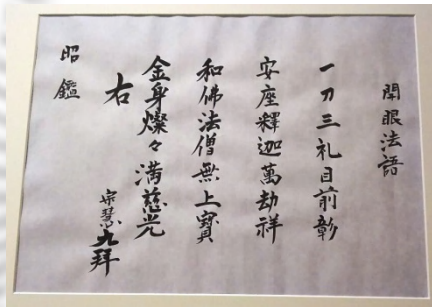 開眼法語
一刀三礼目前彰
安座釋迦萬劫祥
和佛法僧無上寶
金身燦々満慈光
右
宗慧九拜
昭鑑